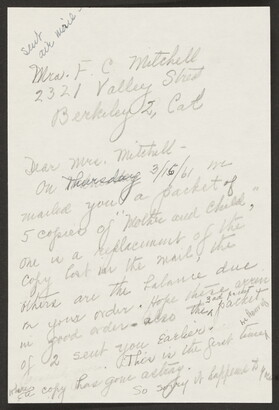 sent
air mail -
Mrs. F. C Mitchell
2321 Valley Street
Berkeley 2, Cal
Dear Mrs. Mitchell -
On Thursday 3/16/61 we
mailed you a packet of
5 copies of "Mother and Child,"
one is a replacement of the
copy lost in the mail, the
others are the balance due
on your order. Hope these arrive
in good order - also the packet
of 2 sent you earlier.
This is the first time
a copy has gone astray.
So sorry it happened to